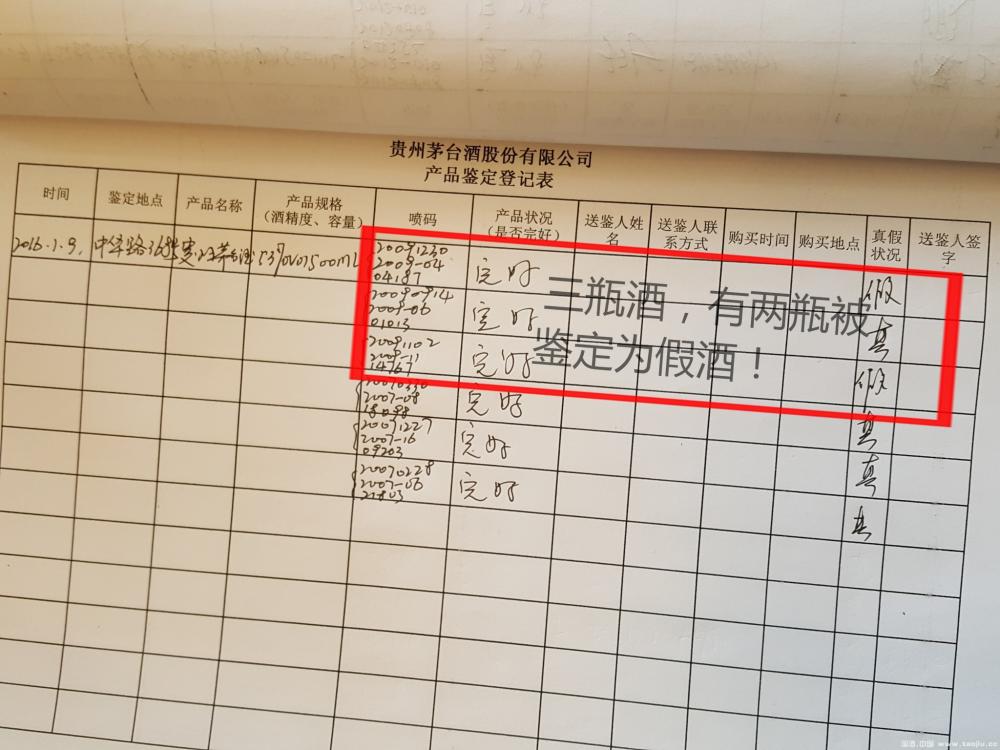 贵州茅台酒股份有限公司
产品鉴定登记表
时间 鉴定地点 产品名称 产品规格 (酒精度、容量) 喷码 产品状况 (是否完好) 送鉴人姓名 送鉴人联系方式 购买时间 购买地点 真假状况 送鉴人签字
2016.1.9. 中华路 500ml
20091230
2009-04
04187 完好 假
20090914
2009-06
01013 完好 真
20091102
2009-11
14767 完好 假
三瓶酒，有两瓶被
鉴定为假酒！
20070330
2007-08
18098 完好 真
20071227
2007-16
09203 完好 真
20070228
2007-06
21803 完好 真
www.kaojiu.cc